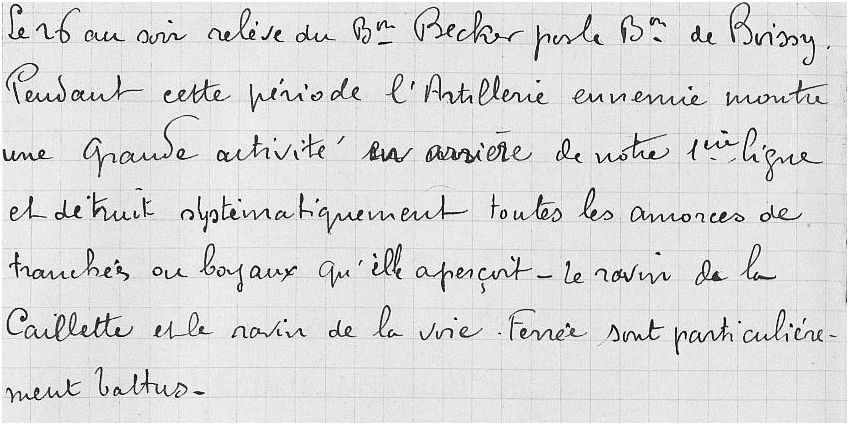 Le 26 au soir relève du Bon Becker par le Bon de Boissy.
Pendant cette période l'Artillerie ennemie montre
une grande activité en arrière de notre 1ère ligne
et détruit systématiquement toutes les amorces de
tranchées ou boyaux qu'elle aperçoit - Le ravin de la
Caillette et le ravin de la voie Ferrée sont particulière-
ment battus -